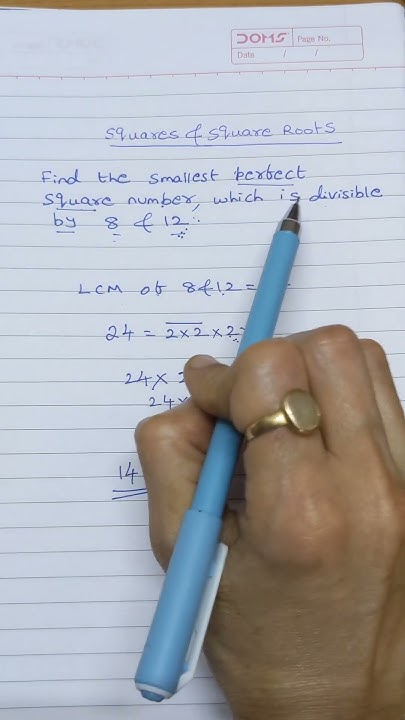 DOMS Page No.
Date / /
Squares & Square Roots
Find the smallest perfect
square number, which is divisible
by 8 & 12.
LCM of 8 & 12 =
24 = 2 × 2 × 2 ×
24 ×
24 ×
14